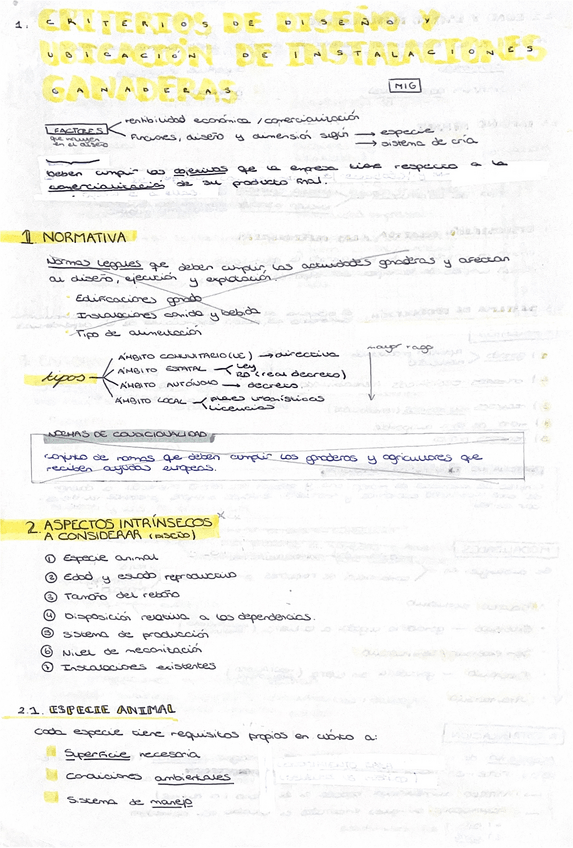 1. CRITERIOS DE DISEÑO Y
UBICACIÓN DE INSTALACIONES
GANADERAS
MIG
FACTORES
que influyen
en el diseño
rentabilidad económica / comercialización
Funciones, diseño y dimensión según → especie
→ sistema de cría
Deben cumplir los objetivos que la empresa tiene respecto a la
comercialización de su producto final.
1. NORMATIVA
Normas legales que deben cumplir, las actividades ganaderas y afectan
al diseño, ejecución y explotación.
· Edificaciones ganado
· Instalaciones comida y bebida
· Tipo de alimentación
tipos
ÁMBITO COMUNITARIO (UE) → directiva
ÁMBITO ESTATAL
Ley
RD (real decreto)
ÁMBITO AUTÓNOMO → decreto.
ÁMBITO LOCAL
planes urbanísticos
licencias
mayor rango
NORMAS DE CONDICIONALIDAD
conjunto de normas que deben cumplir los ganaderos y agricultores que
reciben ayudas europeas.
2. ASPECTOS INTRÍNSECOS
A CONSIDERAR (DISEÑO)
① Especie animal
② Edad y estado reproductivo
③ Tamaño del rebaño
④ Disposición relativa a las dependencias.
⑤ Sistema de producción
⑥ Nivel de mecanización
⑦ Instalaciones existentes
2.1. ESPECIE ANIMAL
Cada especie tiene requisitos propios en cuanto a:
Superficie necesaria
Condiciones ambientales
Sistema de manejo